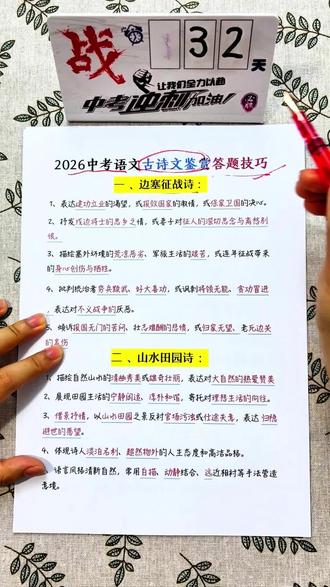 战
32
天
让我们全力以赴
中考冲刺加油!
2026中考语文古诗文鉴赏答题技巧
一、边塞征战诗:
1、表达建功立业的渴望,或报效国家的激情,或保家卫国的决心。
2、抒发戍边将士的思乡之情,或寄于对征人的深切思念与离愁别
恨。
3、描绘塞外环境的荒凉恶劣、军旅生活的艰苦,或连年征战带来
的身心创伤与牺牲。
4、批判统治者穷兵黩武、好大喜功,或讽刺将领无能、贪功冒进
,表达对不义战争的厌恶。
5、倾诉报国无门的苦闷、壮志难酬的悲愤,或归家无望、老死边关
的哀伤
二、山水田园诗:
1、描绘自然山水的清幽秀美或雄奇壮丽,表达对大自然的热爱赞美
2、展现田园生活的宁静闲适、淳朴和谐,寄托对理想生活的向往。
3、借景抒情,以山水田园之景反衬官场污浊或仕途失意,表达归隐
避世的愿望。
4、体现诗人淡泊名利、超然物外的人生态度和高洁品格。
、语言风格清新自然,常用白描、动静结合、远近相衬等手法营造
意境。